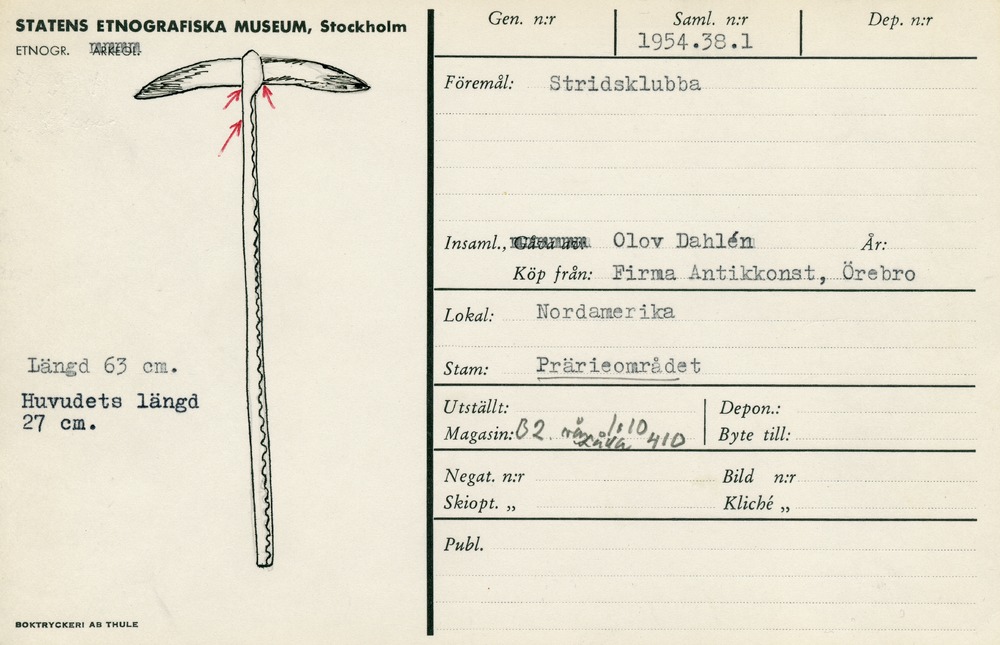 STATENS ETNOGRAFISKA MUSEUM, Stockholm
ETNOGR. ARKEOL.
Längd 63 cm.
Huvudets längd
27 cm.
BOKTRYCKERI AB THULE
Gen. n:r Saml. n:r Dep. n:r
1954.38.1
Föremål: Stridsklubba
Insaml., Gåva av: Olov Dahlén År:
Köp från: Firma Antikkonst, Örebro
Lokal: Nordamerika
Stam: Prärieområdet
Utställt: Depon.:
Magasin: B2 410 Byte till:
Negat. n:r Bild n:r
Skiopt. „ Kliché „
Publ.